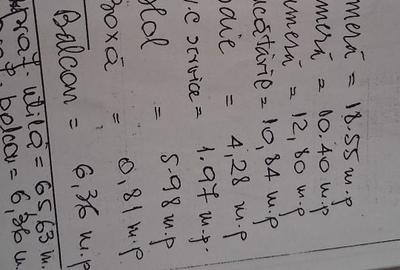 meră = 18.55 m.p
meră = 10.40 m.p
meră = 12,80 m.p
cătărie = 10,84 m.p
aie = 4,28 m.p
c servicu = 1.97 m.p.
Hol = 5.98 m.p
oxă = 0,81 m.p
Balcon = 6,36 m.p
praf. utilă = 65.63 m.
praf. balcon = 6,36 m.